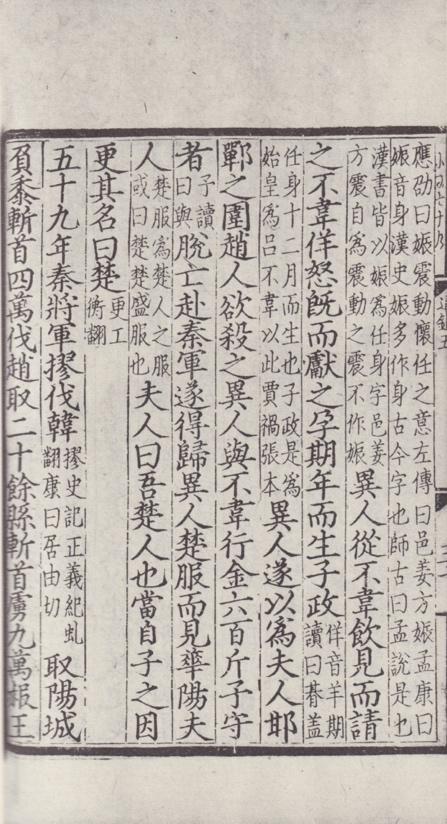 應劭曰娠震動懷任之意左傳曰邑姜方娠孟康曰
娠音身漢史娠多作身古今字也師古曰孟說是也
漢書皆以娠為任身字邑姜
方震自為震動之震不作娠
異人從不韋飲見而請
之不韋佯怒既而獻之孕期年而生子政
佯音羊期
讀曰朞蓋
任身十二月而生也子政是為
始皇為呂不韋以此賈禍張本
異人遂以為夫人邯
鄲之圍趙人欲殺之異人與不韋行金六百斤予守
者
予讀
曰與
脫亡赴秦軍遂得歸異人楚服而見華陽夫
人
楚服為楚人之服
或曰楚楚盛服也
夫人曰吾楚人也當自子之因
更其名曰楚
更工
衡翻
五十九年秦將軍摎伐韓
摎史記正義紀虬
翻康曰居由切
取陽城
負黍斬首四萬伐趙取二十餘縣斬首虜九萬赧王